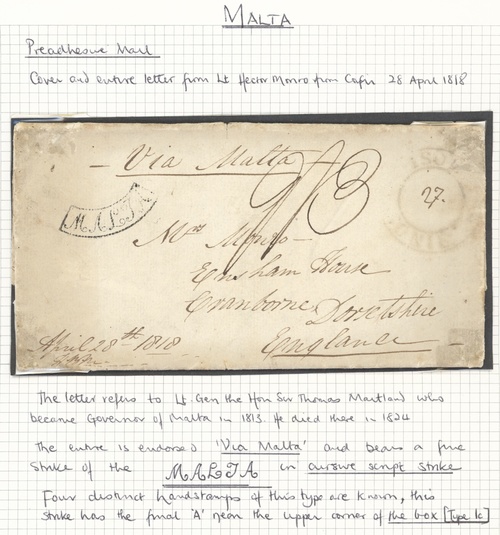 MALTA
Preadhesive Mail
Cover and entire letter from Lt Hector Monro from Corfu 28 April 1818
Via Malta
MALTA
27.
Mrs Monro
Edmsham House
Cranborne Dorsetshire
England
April 28th 1818
The letter refers to Lt. Gen the Hon Sir Thomas Maitland who
became Governor of Malta in 1813. He died there in 1824
The entire is endorsed 'Via Malta' and bears a fine
strike of the MALTA in cursive script strike
Four distinct handstamps of this type are known, this
strike has the final 'A' near the upper corner of the box [Type 1c]